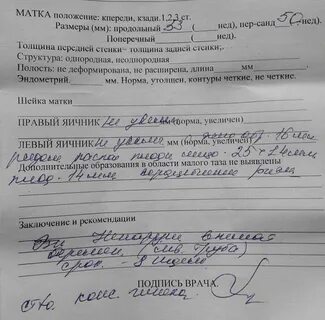 МАТКА положение: кпереди, кзади.1,2,3 ст.
Размеры (мм): продольный 53 ( нед), пер-санд 50 нед).
Поперечный ( нед).
Толщина передней стенки= толщина задней стенки;.
Структура: однородная, неоднородная
Полость: не деформирована, не расширена, длина мм
Эндометрий. мм. Норма, утолщен, контуры четкие, не четкие.
Шейка матки
ПРАВЫЙ ЯИЧНИК не увелич (норма, увеличен)
ЛЕВЫЙ ЯИЧНИК не увелич мм (норма, увеличен) 16 мм
рядом 25 х 24 мм
Дополнительные образования в области малого таза не выявлены
плод - 14 мм
Заключение и рекомендации
беремен (лев. труба)
срок - 8 недель
ПОДПИСЬ ВРАЧА.
конс. гинек.